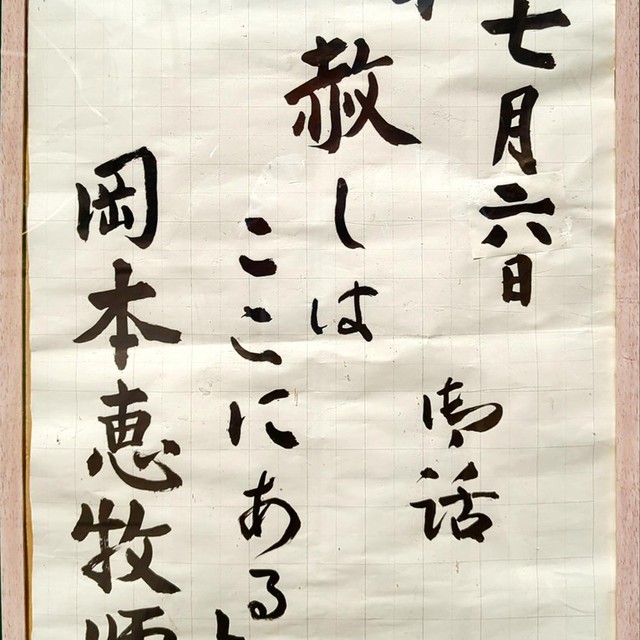 七月六日
御話
赦しは
ここにある
岡本恵牧師